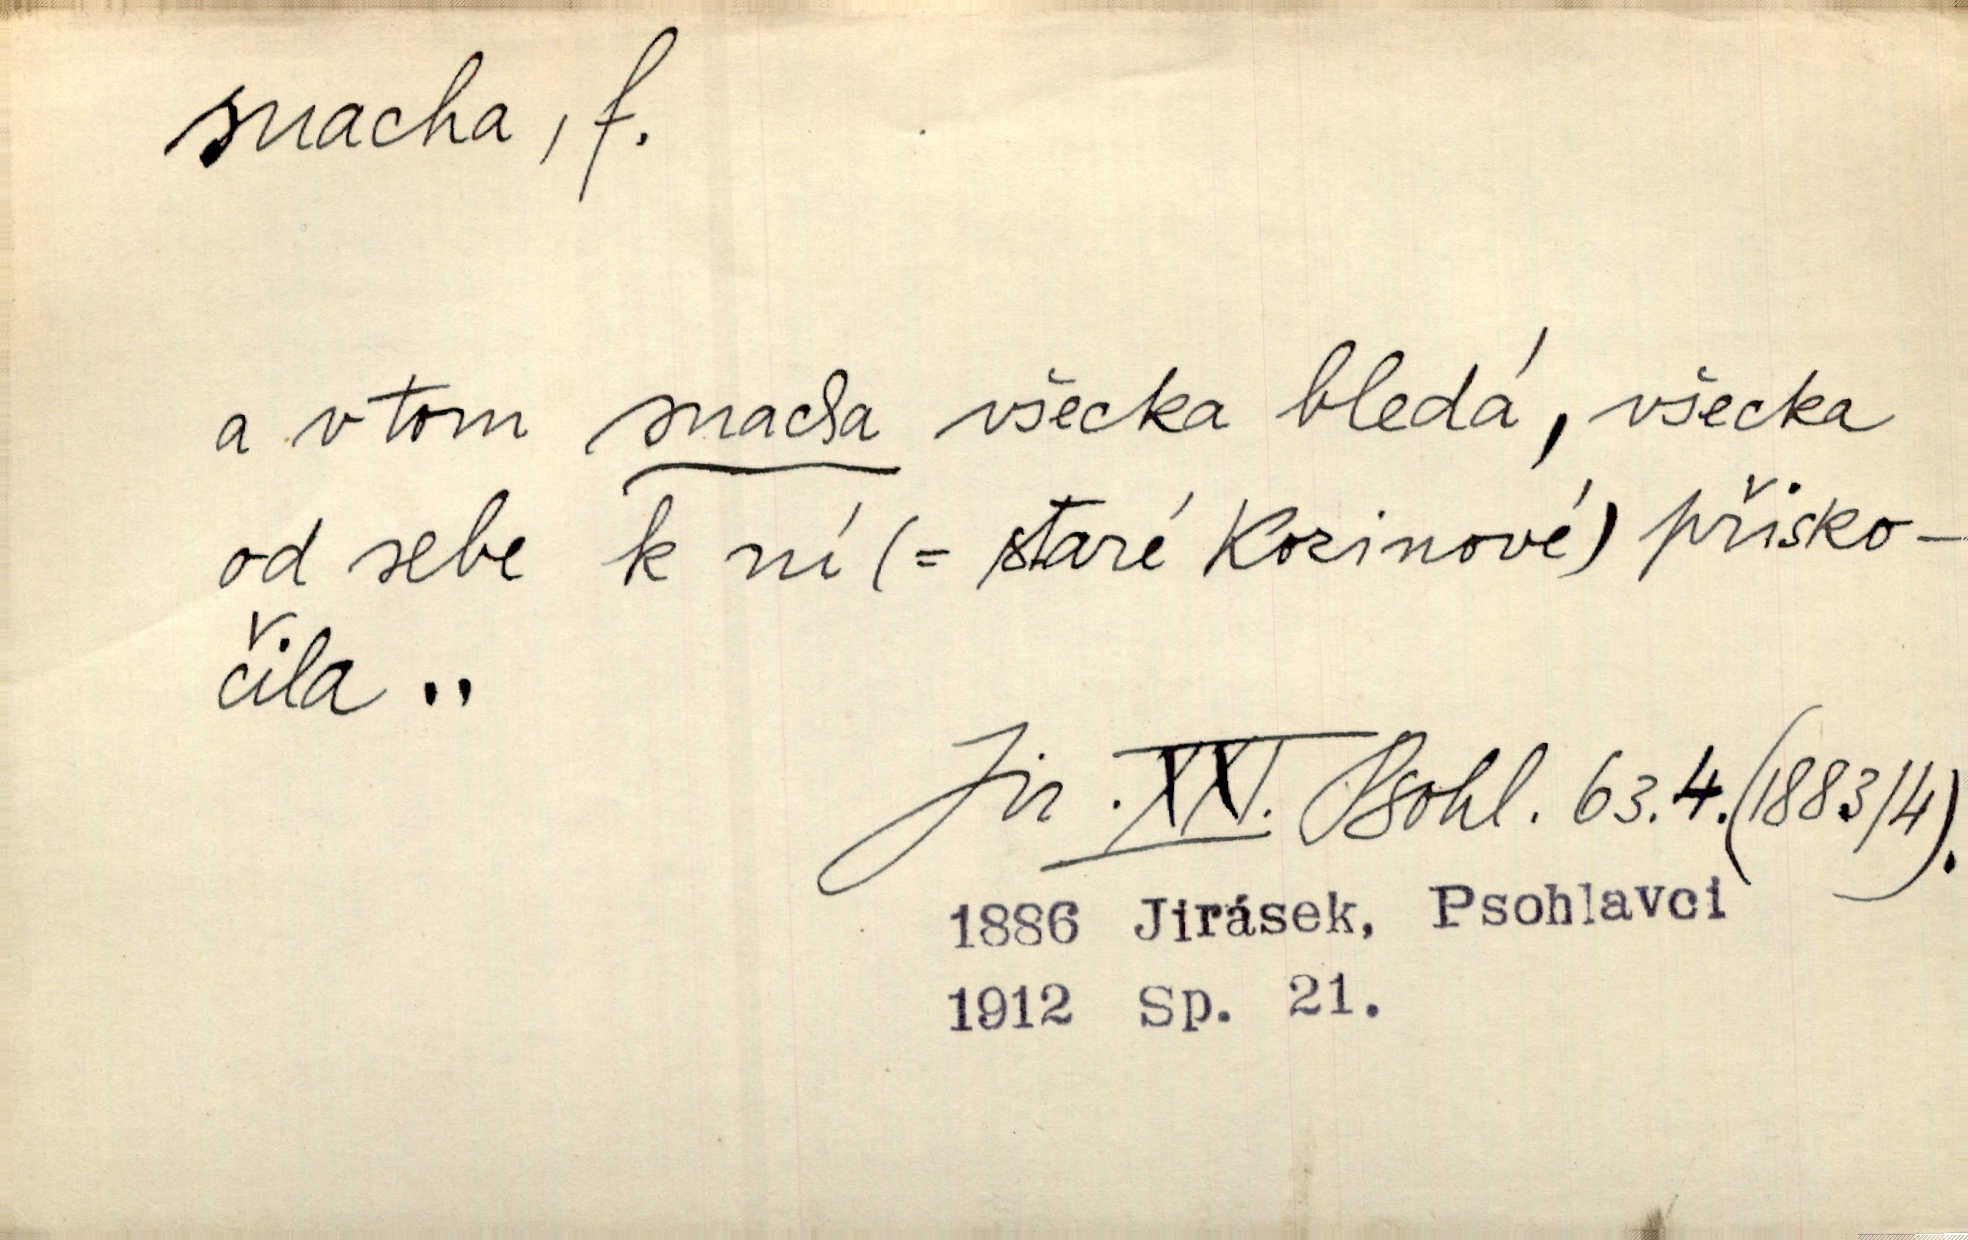 snacha, f.
a v tom snacha všecka bledá, všecka
od sebe k ní (= staré Kozinové) přisko-
čila ..
Jir. XXI. Psohl. 63.4.(1883/4).
1886 Jirásek, Psohlavci
1912 Sp. 21.